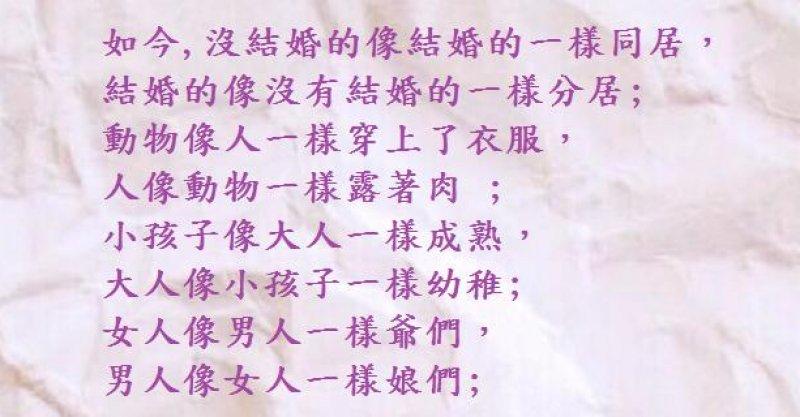 如今,沒結婚的像結婚的一樣同居，
結婚的像沒有結婚的一樣分居;
動物像人一樣穿上了衣服，
人像動物一樣露著肉 ;
小孩子像大人一樣成熟，
大人像小孩子一樣幼稚;
女人像男人一樣爺們，
男人像女人一樣娘們;